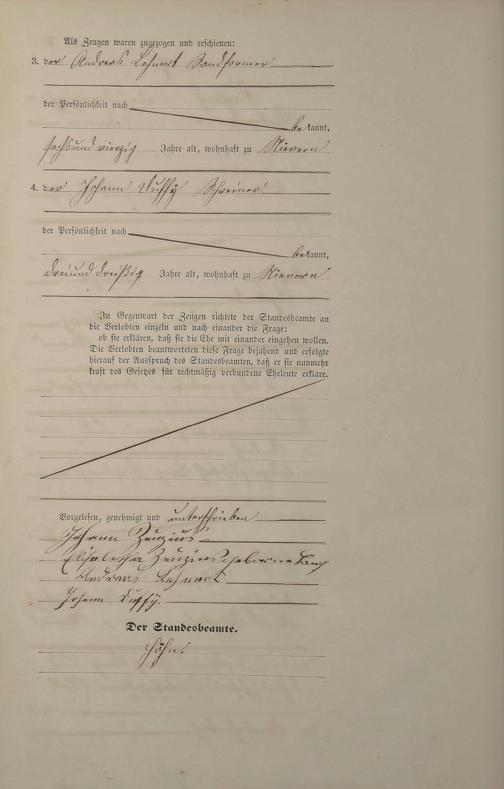 Als Zeugen waren zugezogen und erschienen:
3. der Andreas Lehnert Sandformer
der Persönlichkeit nach
bekannt,
sechsundvierzig Jahre alt, wohnhaft zu Nievern
4. der Johann Duffy Schreiner
der Persönlichkeit nach
bekannt,
dreiunddreißig Jahre alt, wohnhaft zu Nievern
In Gegenwart der Zeugen richtete der Standesbeamte an
die Verlobten einzeln und nach einander die Frage:
ob sie erklären, daß sie die Ehe mit einander eingehen wollen.
Die Verlobten beantworteten diese Frage bejahend und erfolgte
hierauf der Ausspruch des Standesbeamten, daß er sie nunmehr
kraft des Gesetzes für rechtmäßig verbundene Eheleute erkläre.
Vorgelesen, genehmigt und unterschrieben
Johann Zenzius
Elisabetha Zenzius geborene Lang
Andreas Lehnert
Johann Duffy.
Der Standesbeamte.
Höhn.